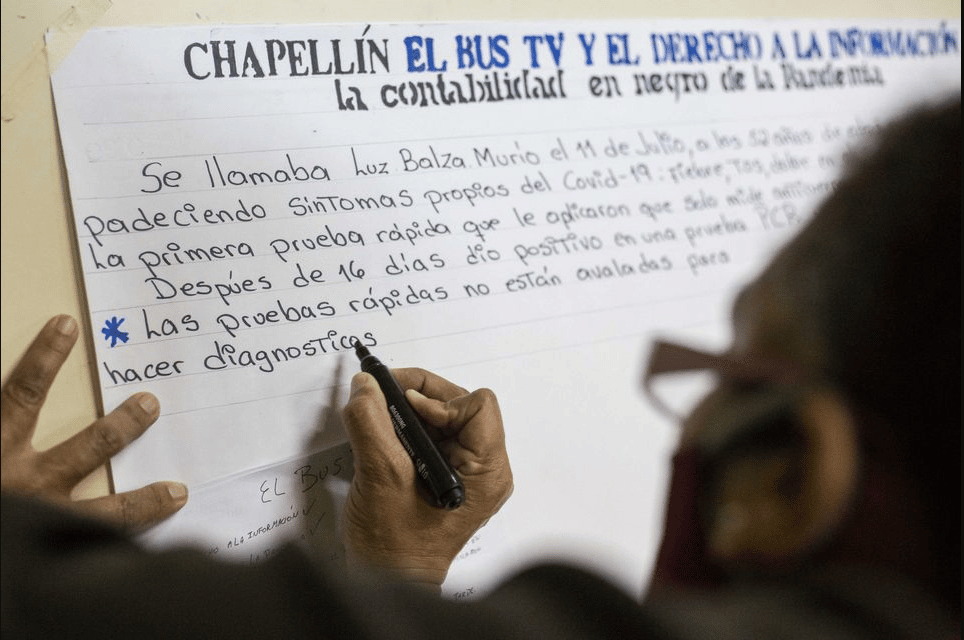 CHAPELLÍN EL BUS TV Y EL DERECHO A LA INFORMACIÓN
la contabilidad en negro de la Pandemia
Se llamaba Luz Balza. Murio el 11 de Julio, a los 52 años de
padeciendo síntomas propios del Covid-19: fiebre, Tos, dolor en
La primera prueba rápida que le aplicaron que solo mide
Despúes de 16 días dio positivo en una prueba PCR
* Las pruebas rápidas no están avaladas para
hacer diagnosticos
EL BUS
A LA INFORMACIÓN